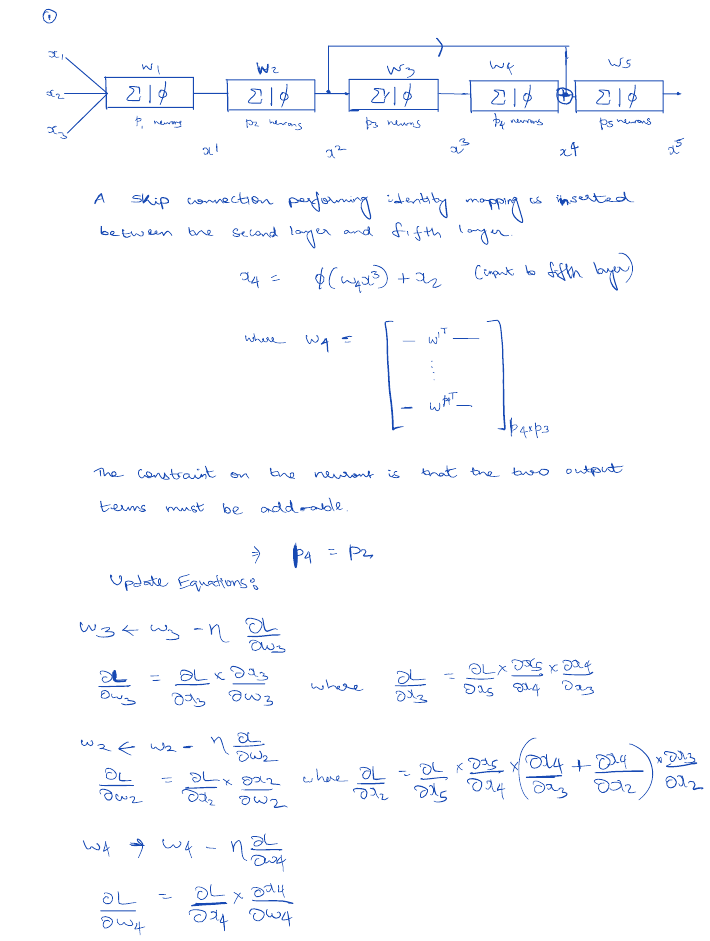 ①
x₁
x₂
x₃
w₁ w₂ w₃ w₄ w₅
Σ|φ Σ|φ Σ|φ Σ|φ ⊕ Σ|φ
p₁ neurons p₂ neurons p₃ neurons p₄ neurons p₅ neurons
x¹ x² x³ x⁴ x⁵
A skip connection performing identity mapping is inserted
between the second layer and fifth layer.
x₄ = φ(w₄x³) + x₂ (input to fifth layer)
where w₄ = [ — w¹ᵀ —
⋮
— wᵖ⁴ᵀ — ] p₄×p₃
The constraint on the neurons is that the two output
terms must be add-able.
⇒ p₄ = p₂
Update Equations:
w₃ ← w₃ - η ∂L/∂w₃
∂L/∂w₃ = ∂L/∂x₃ × ∂x₃/∂w₃ where ∂L/∂x₃ = ∂L/∂x₅ × ∂x₅/∂x₄ × ∂x₄/∂x₃
w₂ ← w₂ - η ∂L/∂w₂
∂L/∂w₂ = ∂L/∂x₂ × ∂x₂/∂w₂ where ∂L/∂x₂ = ∂L/∂x₅ × ∂x₅/∂x₄ × (∂x₄/∂x₃ + ∂x₄/∂x₂) × ∂x₃/∂x₂
w₄ → w₄ - η ∂L/∂w₄
∂L/∂w₄ = ∂L/∂x₄ × ∂x₄/∂w₄